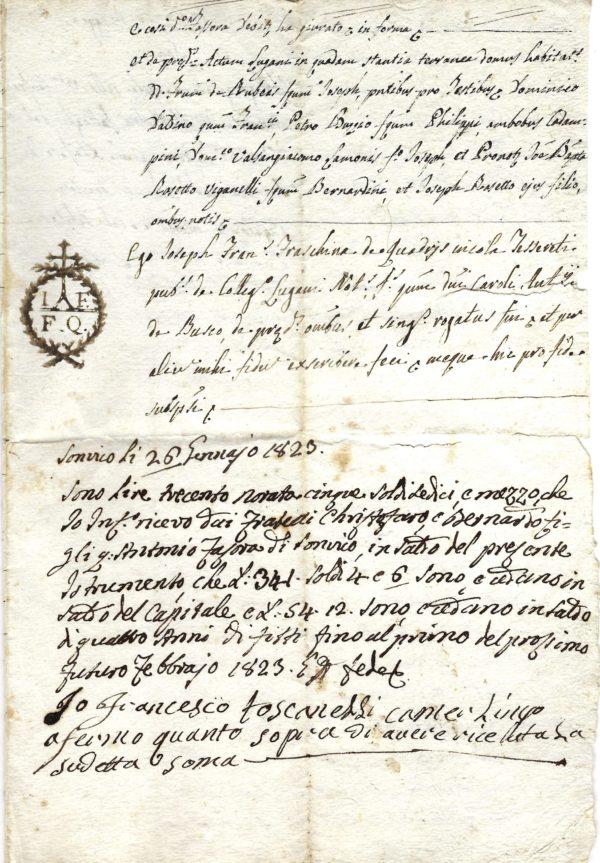 e così d.º Nº Jassora Deb.e ha giurato in forma
et de præs.ª Actum Lugani in quadam stantia terranea domus habitat.s
D. Fran.ci de Rubeis q.m Joseph, p̄ntibus pro Testibus Dominico
Dadino qum Fran.ci Petro Buggio fqum Philippi, ambobus Cadem=
pini, Dom.co Valsangiacomo Lamonis f.º Joseph, et Pronot.s Joe Bapta
Rosetto Viganelli fqum Bernardini, et Joseph Rosetto ejus filio,
omibus notis
Ego Joseph Fran.s Fraschina de Quadrys incola Tessereti
pub.s de Colleg.º Lugani Not.s f.s qum dni Caroli
de Busco, de præd.s omibus, et sing.s rogatus fui et per
aliu mihi fidu exscribere feci meque hic pro fide
subsp̄si
I. F.
F. Q.
Sonvico li 26 Gennajo 1823.
Sono lire trecento novata cinque soldi sedici e mezzo che
Io Inf.º ricevo dai Fratelli Christofaro e Bernardo fi-
gli q. Antonio Fasora di Sonvico, in saldo del presente
Istrumento che L. 341. Soldi 4 e 6 sono e cadano in
saldo del Capitale e L. 54. 12. sono e cadano in saldo
di quattro Anni di fitti fino al primo del prosimo
futuro Febbrajo 1823. fede
Io Francesco Toscanelli camerlingo
afermo quanto sopra di avere riceùta la
sudetta soma